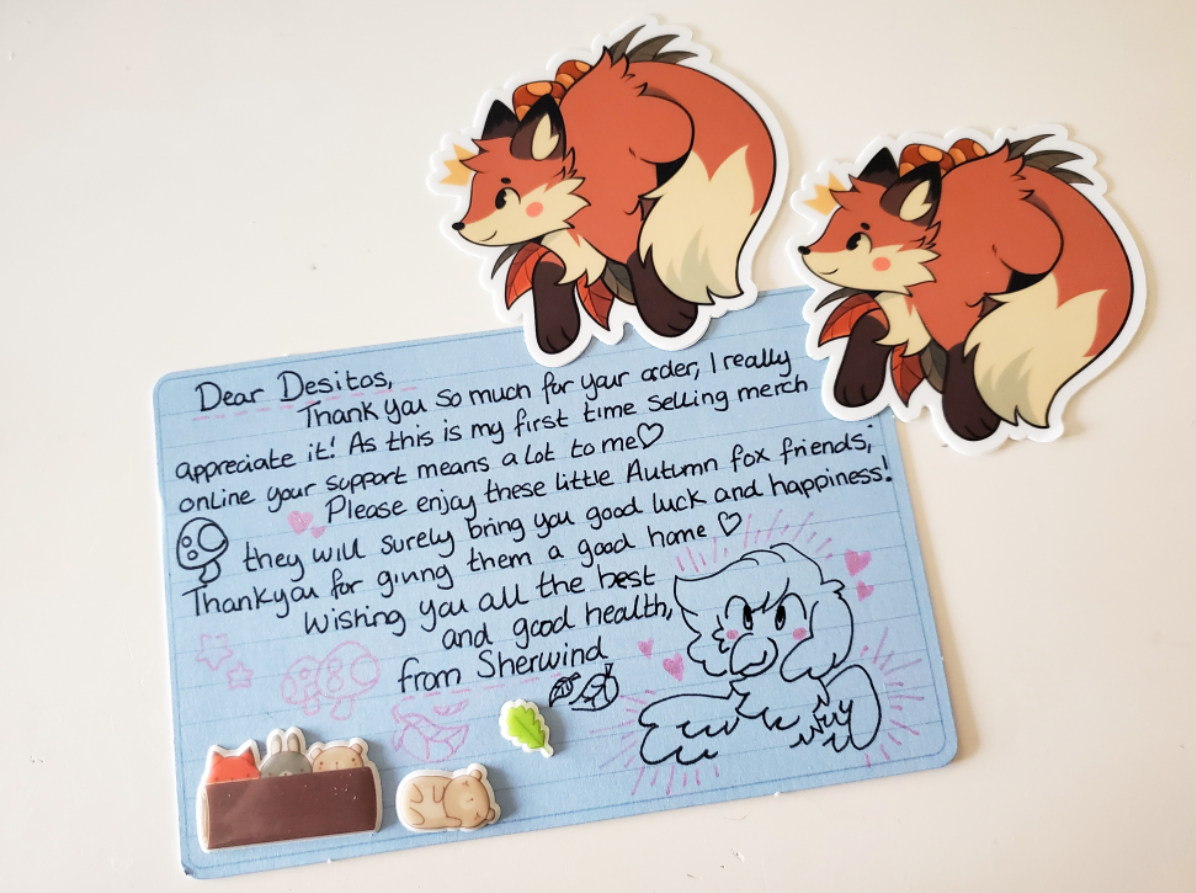 Dear Desitos,
Thank you so much for your order, I really
appreciate it! As this is my first time selling merch
online your support means a lot to me♡
Please enjoy these little Autumn fox friends,
they will surely bring you good luck and happiness!
Thankyou for giving them a good home ♡
Wishing you all the best
and good health,
from Sherwind